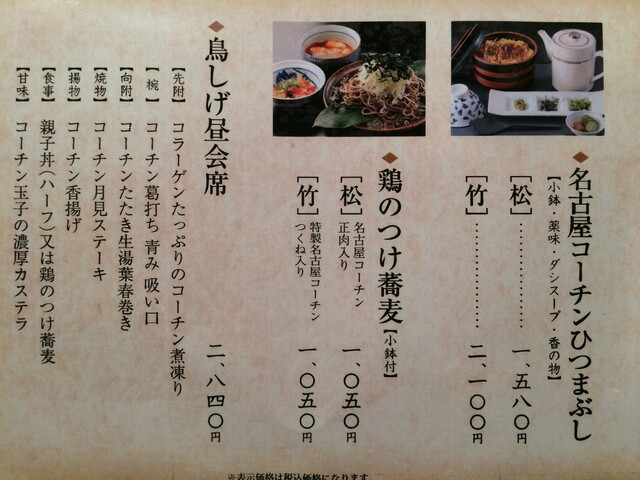 ◆名古屋コーチンひつまぶし
【小鉢・薬味・ダシスープ・香の物】
［松］………………一、五八〇円
［竹］………………二、一〇〇円
◆鶏のつけ蕎麦【小鉢付】
［松］名古屋コーチン
正肉入り 一、〇五〇円
［竹］特製名古屋コーチン
つくね入り 一、〇五〇円
◆鳥しげ昼会席 二、八四〇円
【先附】コラーゲンたっぷりのコーチン煮凍り
【椀】コーチン葛打ち 青み 吸い口
【向附】コーチンたたき生湯葉春巻き
【焼物】コーチン月見ステーキ
【揚物】コーチン香揚げ
【食事】親子丼（ハーフ）又は鶏のつけ蕎麦
【甘味】コーチン玉子の濃厚カステラ
※表示価格は税込価格になります。